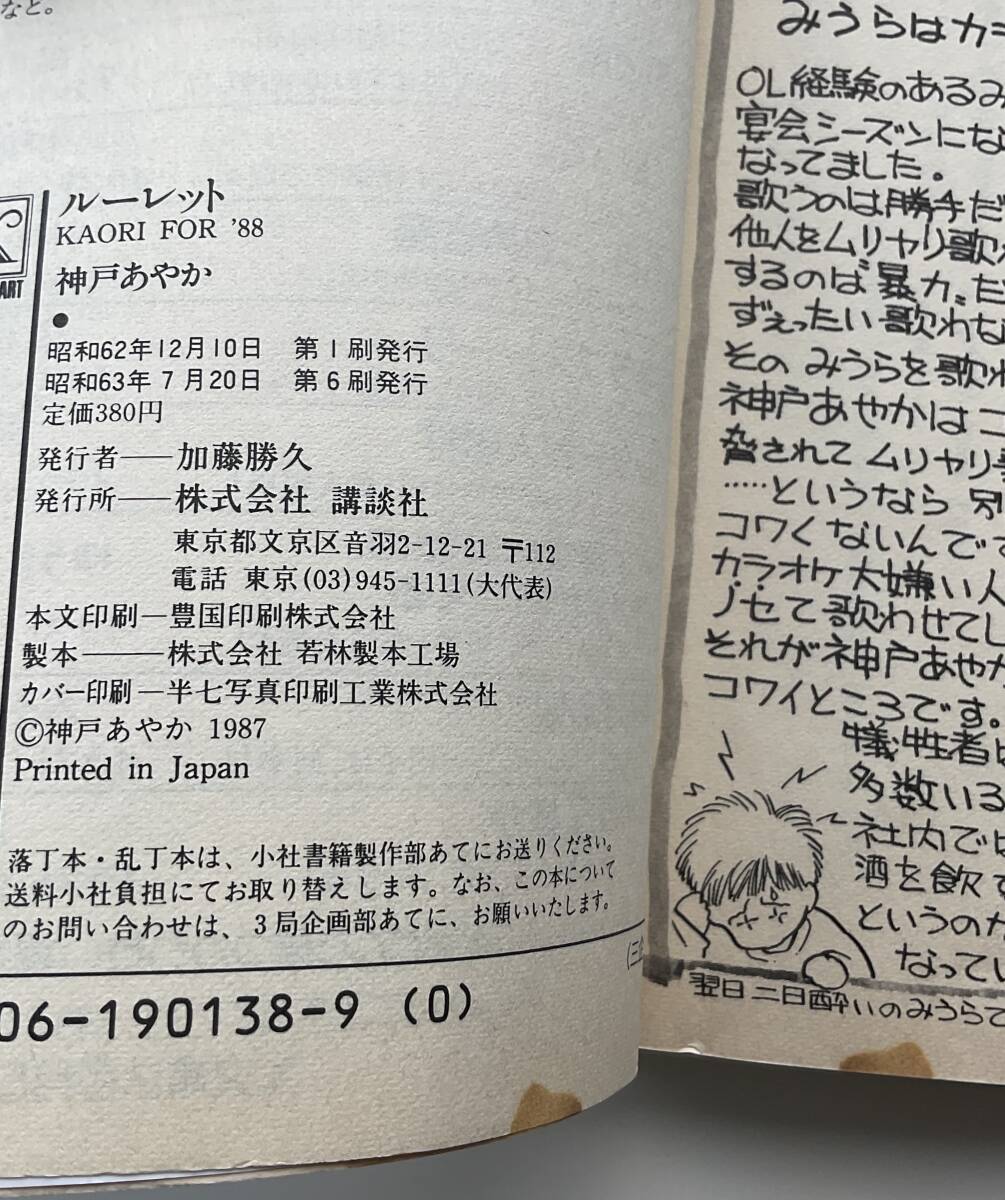 なと。
ルーレット
KAORI FOR '88
神戸あやか
ART
●
昭和62年12月10日 第1刷発行
昭和63年7月20日 第6刷発行
定価380円
発行者――加藤勝久
発行所――株式会社 講談社
東京都文京区音羽2-12-21 〒112
電話 東京(03)945-1111(大代表)
本文印刷―豊国印刷株式会社
製本―――株式会社 若林製本工場
カバー印刷―半七写真印刷工業株式会社
©神戸あやか 1987
Printed in Japan
落丁本・乱丁本は、小社書籍製作部あてにお送りください。
送料小社負担にてお取り替えします。なお、この本について
のお問い合わせは、3局企画部あてに、お願いいたします。
06-190138-9 (0)
みうらはカラ
OL経験のあるみ
宴会シーズンになら
なってました。
歌うのは勝手だ
他人をムリヤリ歌わ
するのは〝暴力〟だ
ずぇったい歌わな
その みうらを歌わ
神戸あやかはコ
脅されて ムリヤリ歌
……というなら 別
コワくないんです
カラオケ大嫌い人
ノセて歌わせてし
それが神戸あやか
コワイところです。
犠牲者は
多数いる
社内では
酒を飲で
というのが
なってい
翌日 二日酔いのみうらで